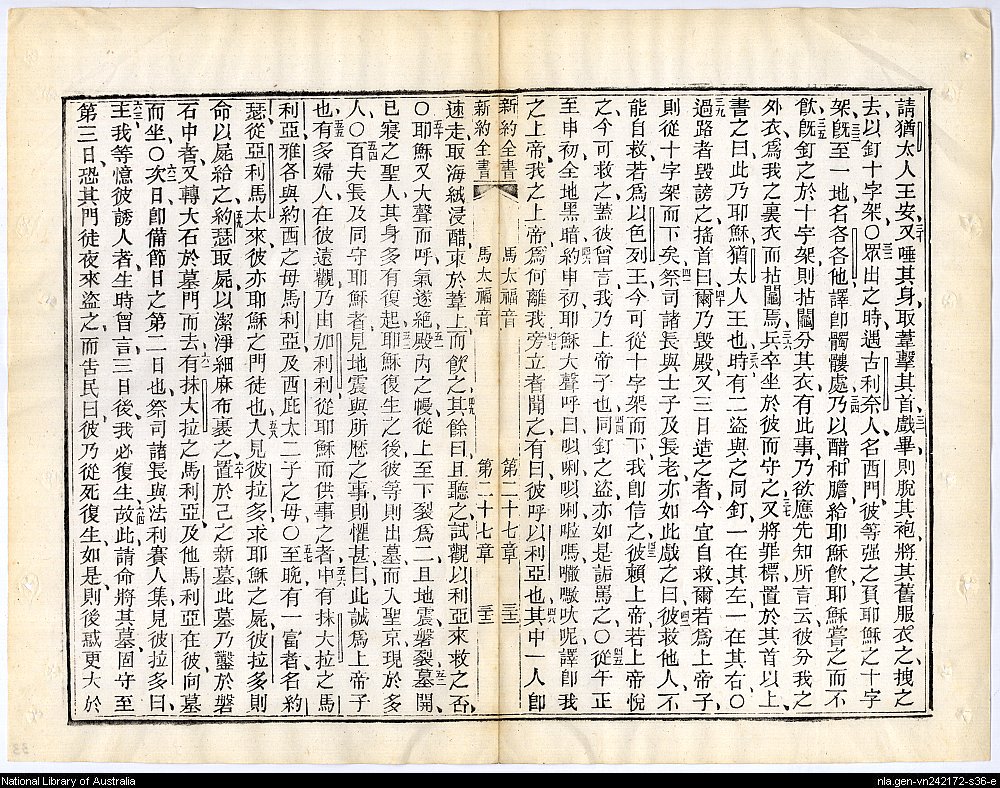 請猶太人王安又唾其身取葦擊其首戲畢則脫其袍將其舊服衣之拽之
去以釘十字架〇眾出之時遇古利奈人名西門彼等强之負耶穌之十字
架既至一地名各各他譯卽髑髏處乃以醋和膽給耶穌飲耶穌嘗之而不
飲既釘之於十字架則拈鬮分其衣有此事乃欲應先知所言云彼分我之
外衣為我之裏衣而拈鬮焉兵卒坐於彼而守之又將罪標置於其首以上
書之曰此乃耶穌猶太人王也時有二盜與之同釘一在其左一在其右〇
過路者毀謗之搖首曰爾乃毀殿又三日造之者今宜自救爾若為上帝子
則從十字架而下矣祭司諸長與士子及長老亦如此戲之曰彼救他人不
能自救若為以色列王今可從十字架而下我卽信之彼賴上帝若上帝悅
之今可救之蓋彼曾言我乃上帝子也同釘之盜亦如是詬罵之〇從午正
至申初全地黑暗約申初耶穌大聲呼曰㕥唎㕥唎啦嗎噉噉呋呢譯卽我
之上帝我之上帝為何離我旁立者聞之有曰彼呼以利亞也其中一人卽
新約全書 馬太福音 第二十七章 三十三
新約全書 馬太福音 第二十七章 三十三
速走取海絨浸醋束於葦上而飲之其餘曰且聽之試觀以利亞來救之否
〇耶穌又大聲而呼氣遂絕殿內之幔從上至下裂為二且地震磐裂墓開
已寢之聖人其身多有復起耶穌復生之後彼等則出墓而入聖京現於多
人〇百夫長及同守耶穌者見地震與所歷之事則懼甚曰此誠為上帝子
也有多婦人在彼遠觀乃由加利利從耶穌而供事之者中有抹大拉之馬
利亞雅各與約西之母馬利亞及西庇太二子之母〇至晚有一富者名約
瑟從亞利馬太來彼亦耶穌之門徒也人見彼拉多求耶穌之屍彼拉多則
命以屍給之約瑟取屍以潔淨細麻布裹之置於己之新墓此墓乃鑿於磐
石中者又轉大石於墓門而去有抹大拉之馬利亞及他馬利亞在彼向墓
而坐〇次日卽備節日之第二日也祭司諸長與法利賽人集見彼拉多曰
主我等憶彼誘人者生時曾言三日後我必復生故此請命將其墓固守至
第三日恐其門徒夜來盜之而告民曰彼乃從死復生如是則後惑更大於
National Library of Australia
nla.gen-vn242172-s36-e